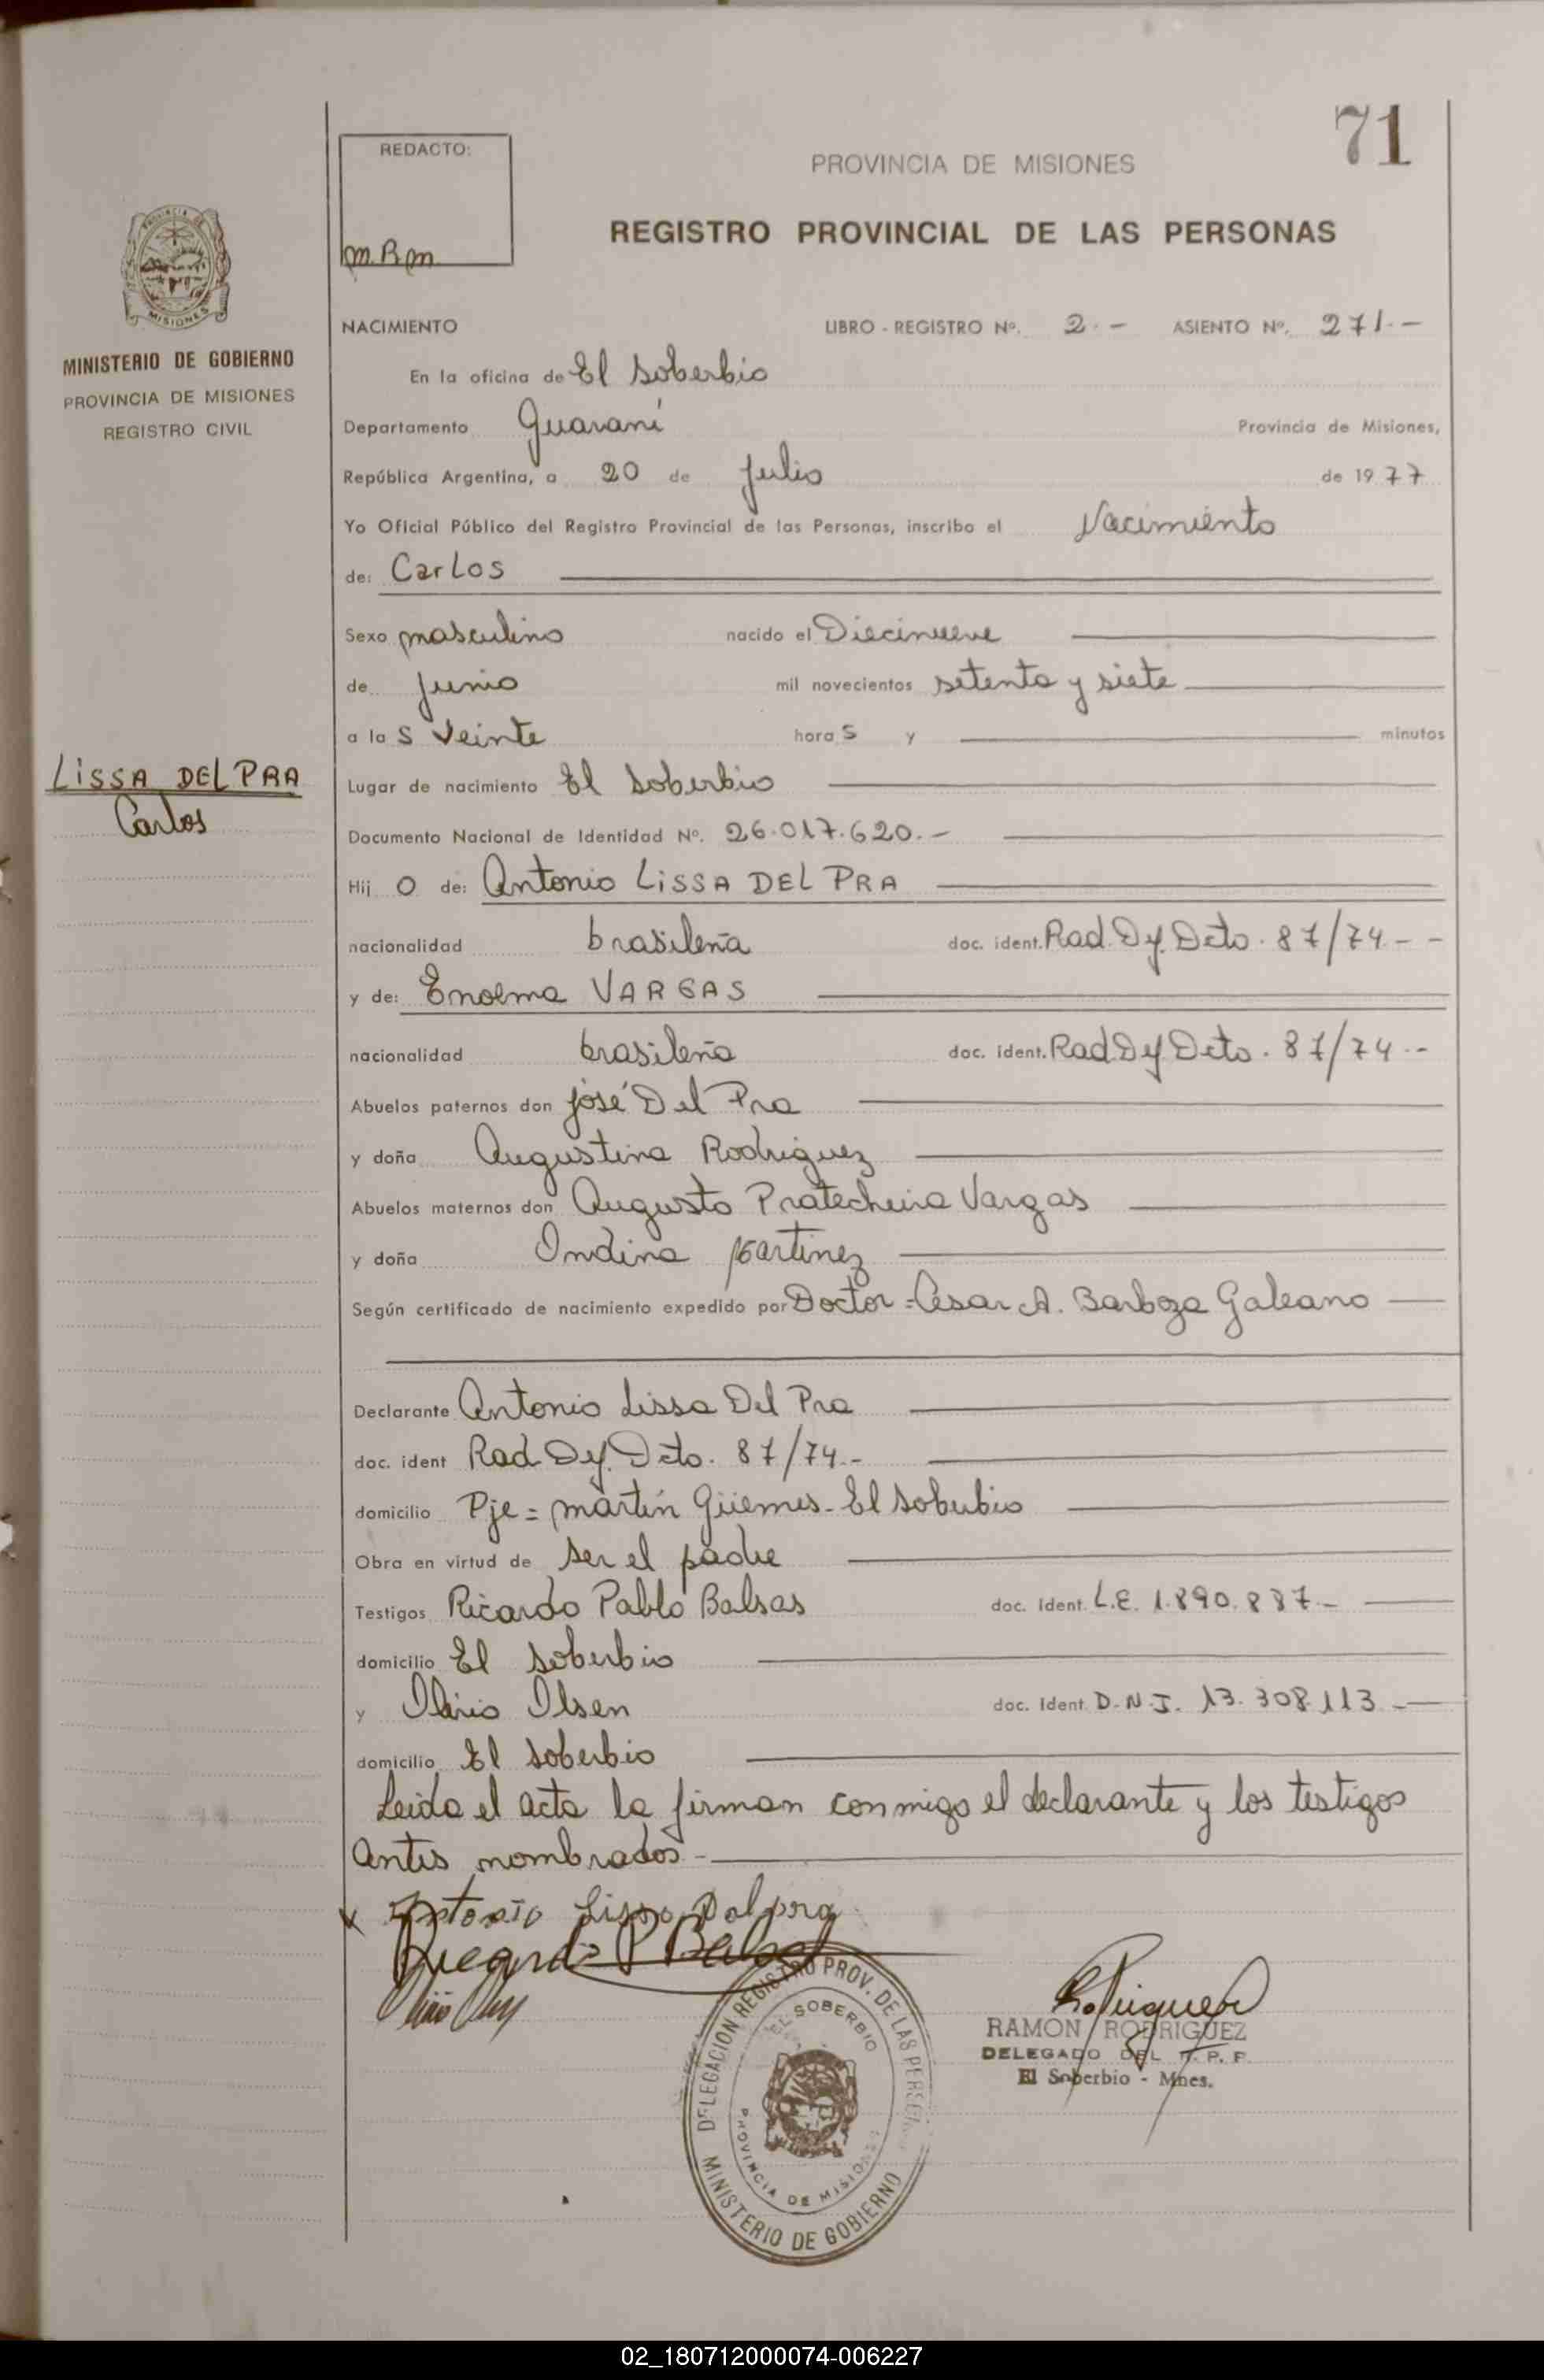 71
REDACTO:
m.R.m.
PROVINCIA DE MISIONES
REGISTRO PROVINCIAL DE LAS PERSONAS
MISIONES
MINISTERIO DE GOBIERNO
PROVINCIA DE MISIONES
REGISTRO CIVIL
LISSA DEL PRA
Carlos
NACIMIENTO LIBRO - REGISTRO Nº. 2.- ASIENTO Nº. 271.-
En la oficina de El Soberbio
Departamento Guaraní Provincia de Misiones,
República Argentina, a 20 de Julio de 1977
Yo Oficial Público del Registro Provincial de las Personas, inscribo el Nacimiento
de: Carlos
Sexo masculino nacido el Diecinueve
de Junio mil novecientos setenta y siete
a las Veinte horas y minutos
Lugar de nacimiento El Soberbio
Documento Nacional de Identidad Nº. 26.017.620.-
Hijo de: Antonio LISSA DEL PRA
nacionalidad brasileña doc. ident. Rad. Dy. Dcto. 87/74.--
y de: Enoema VARGAS
nacionalidad brasileña doc. ident. Rad. Dy Dcto. 87/74.-
Abuelos paternos don José Del Pra
y doña Augustina Rodriguez
Abuelos maternos don Augusto Vargas
y doña Ondina Martinez
Según certificado de nacimiento expedido por Doctor = Cesar A. Barboza Galeano
Declarante Antonio Lissa Del Pra
doc. ident Rad Dy. Dcto. 87/74.-
domicilio Pje = martín Güemes - El Soberbio
Obra en virtud de ser el padre
Testigos Ricardo Pablo Balsas doc. Ident. L.E. 1.890.887.-
domicilio El Soberbio
y Olsen doc. Ident. D.N.I. 13.308.113.-
domicilio El Soberbio
Leida el acta la firman conmigo el declarante y los testigos
antes nombrados.-
Antonio Lisso Dalpra
Ricardo P Balsas
DELEGACION REGISTRO PROV. DE LAS PERSONAS
EL SOBERBIO
PROVINCIA DE MISIONES
MINISTERIO DE GOBIERNO
RAMON RODRIGUEZ
DELEGADO DEL R. P. P.
El Soberbio - Mnes.
02_180712000074-006227